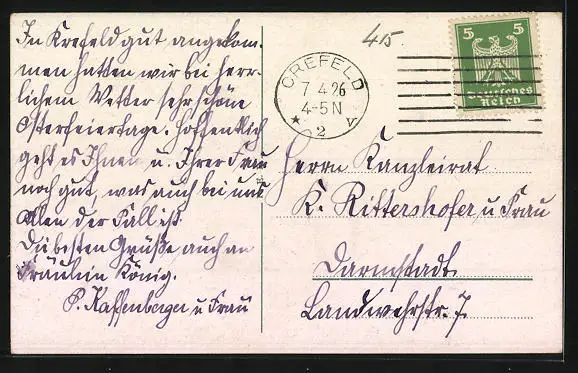 In Krefeld gut angekom-
men hatten wir bei herr-
lichem Wetter sehr schöne
Osterfeiertage. Hoffentlich
geht es Ihnen u. Ihrer Frau
noch gut, was auch bei uns
allen der Fall ist.
Die besten Grüße, auch an
Fräulein König.
P. Kaffenberger u Frau
415.
CREFELD
7.4.26
4-5 N
★ 2 v
5 5
Deutsches
Reich
Herrn Kanzleirat
K. Rittershofer u Frau
Darmstadt
Landwehrstr. 7.